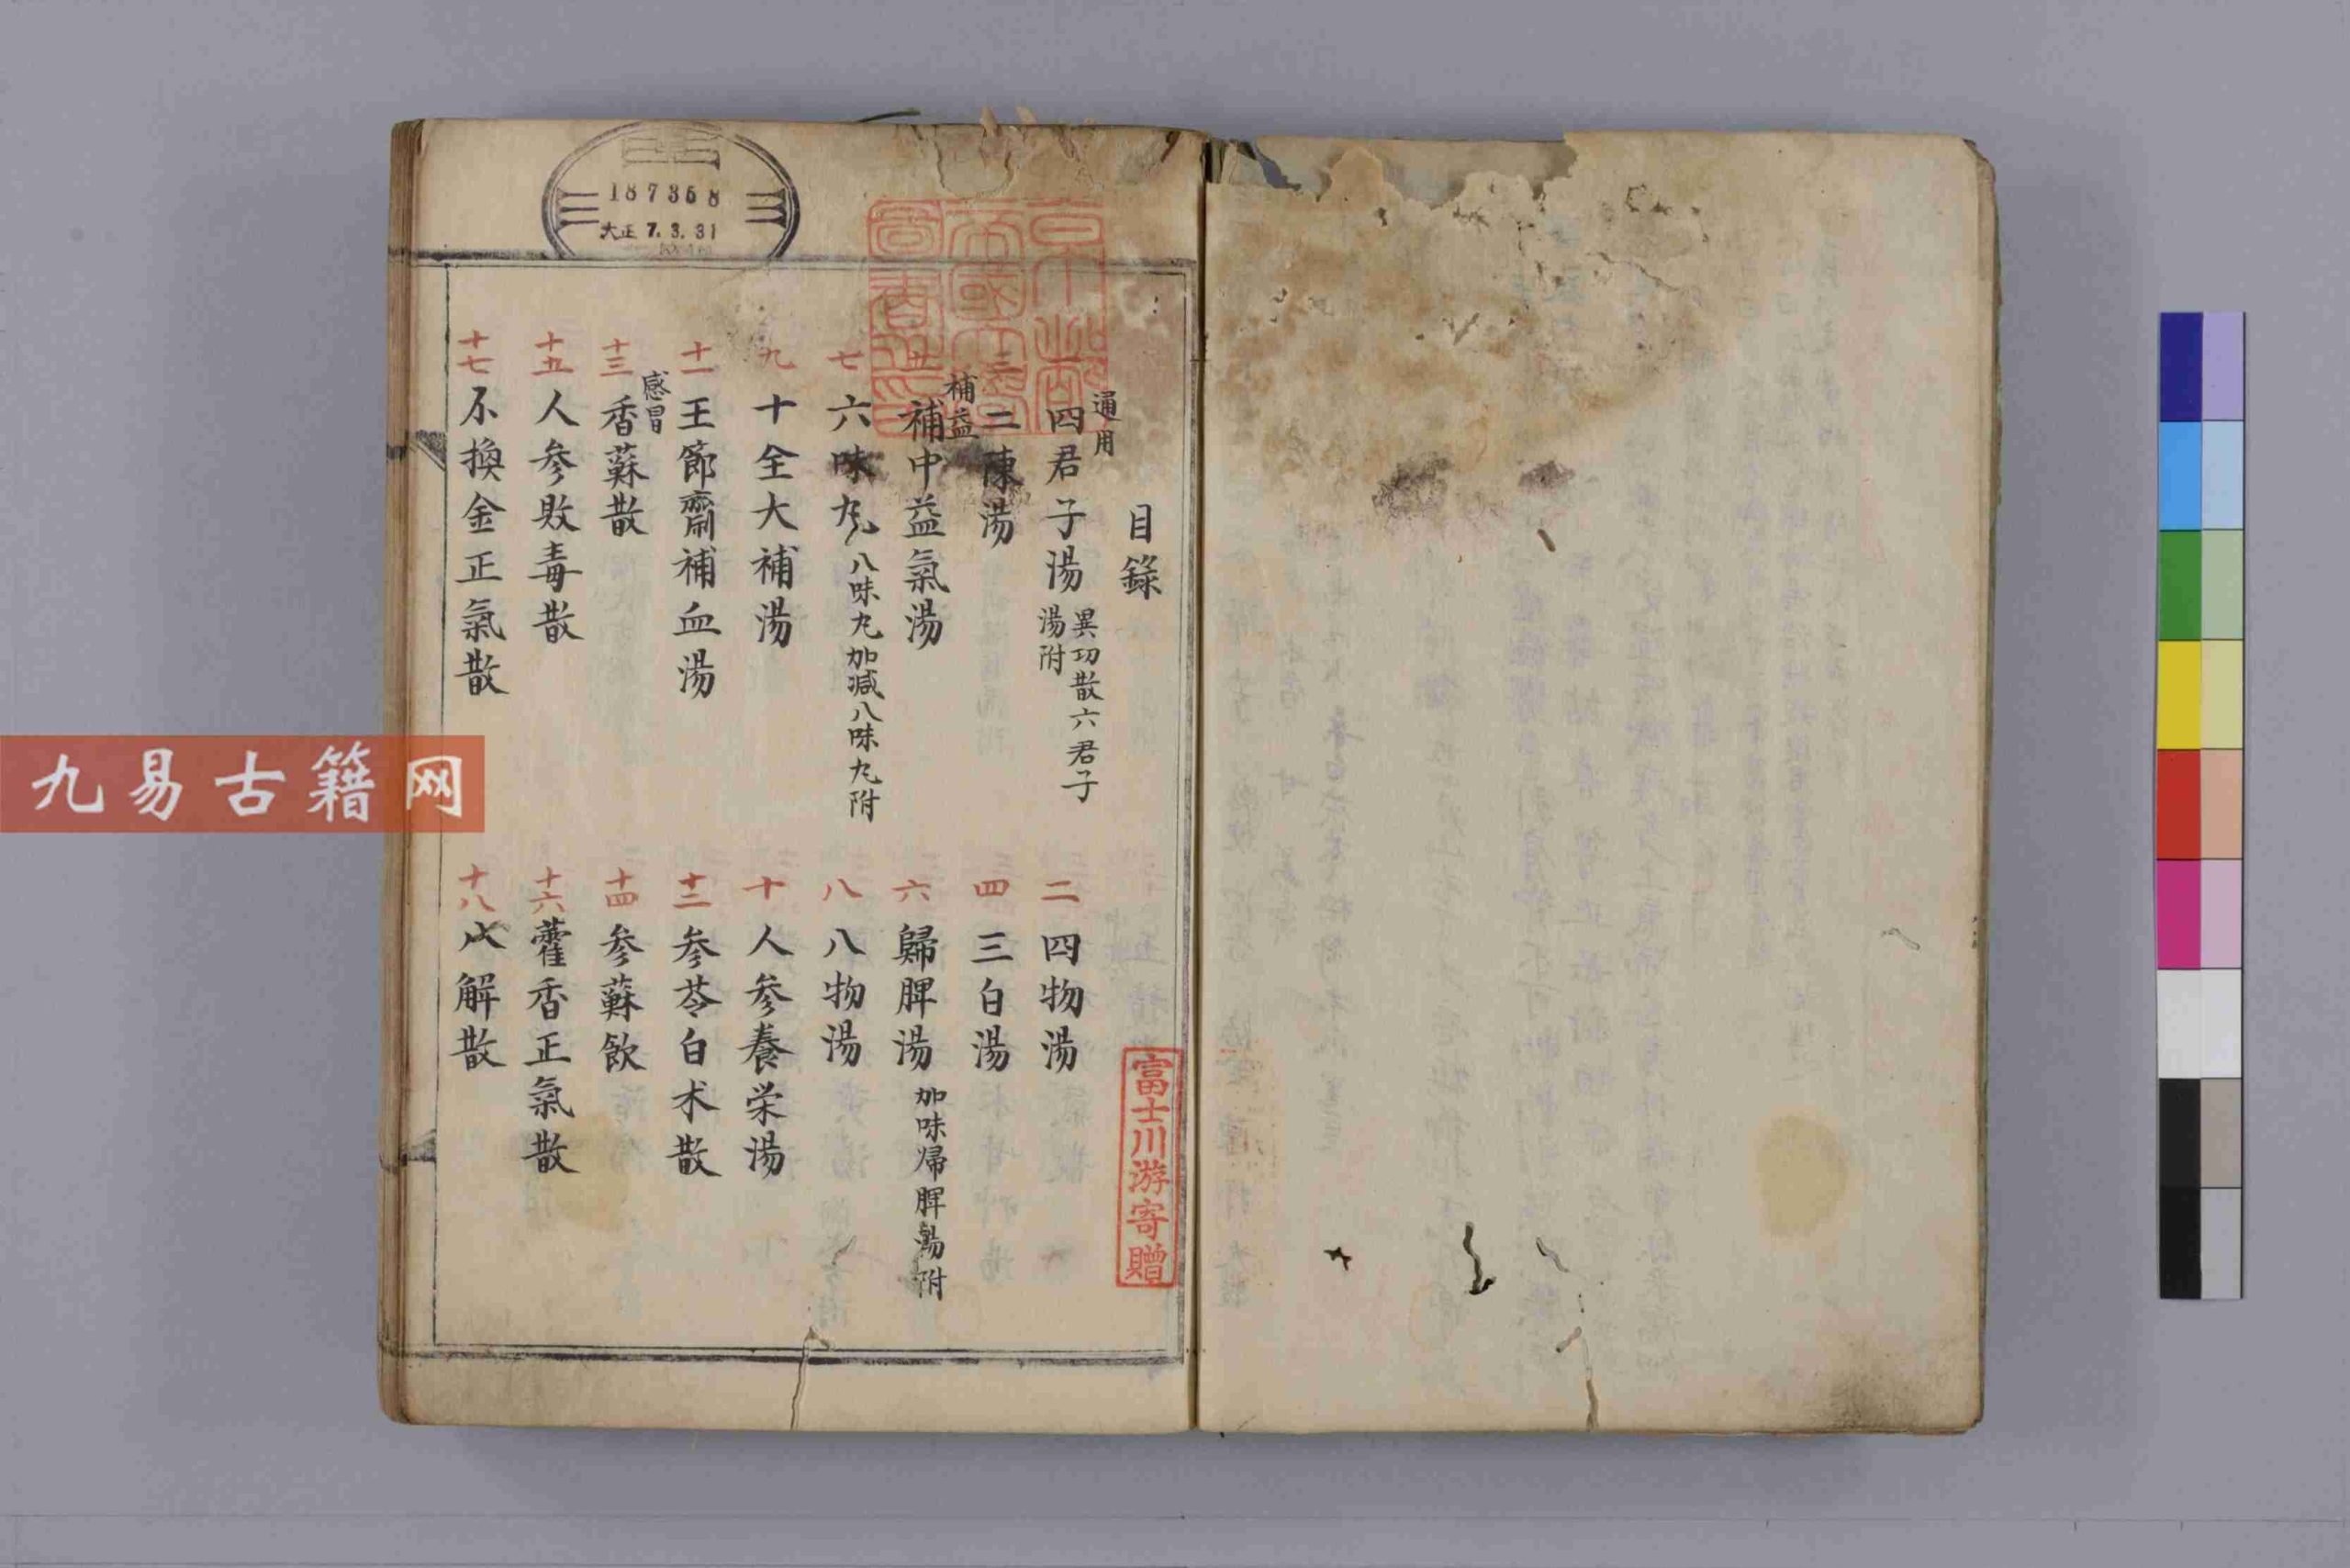 目錄
通用
四君子湯 異功散六君子湯附
二 四物湯
三 二陳湯
四 三白湯
補益
五 補中益氣湯
六 歸脾湯 加味帰脾湯附
七 六味丸 八味丸加減八味丸附
八 八物湯
九 十全大補湯
十 人参養栄湯
十一 王節齋補血湯
十二 参苓白朮散
感冒
十三 香蘇散
十四 参蘇飲
十五 人参敗毒散
十六 藿香正氣散
十七 不換金正氣散
十八 八解散
富士川游寄贈
京都帝國大學圖書之印
187368
大正 7.3.31
九易古籍网